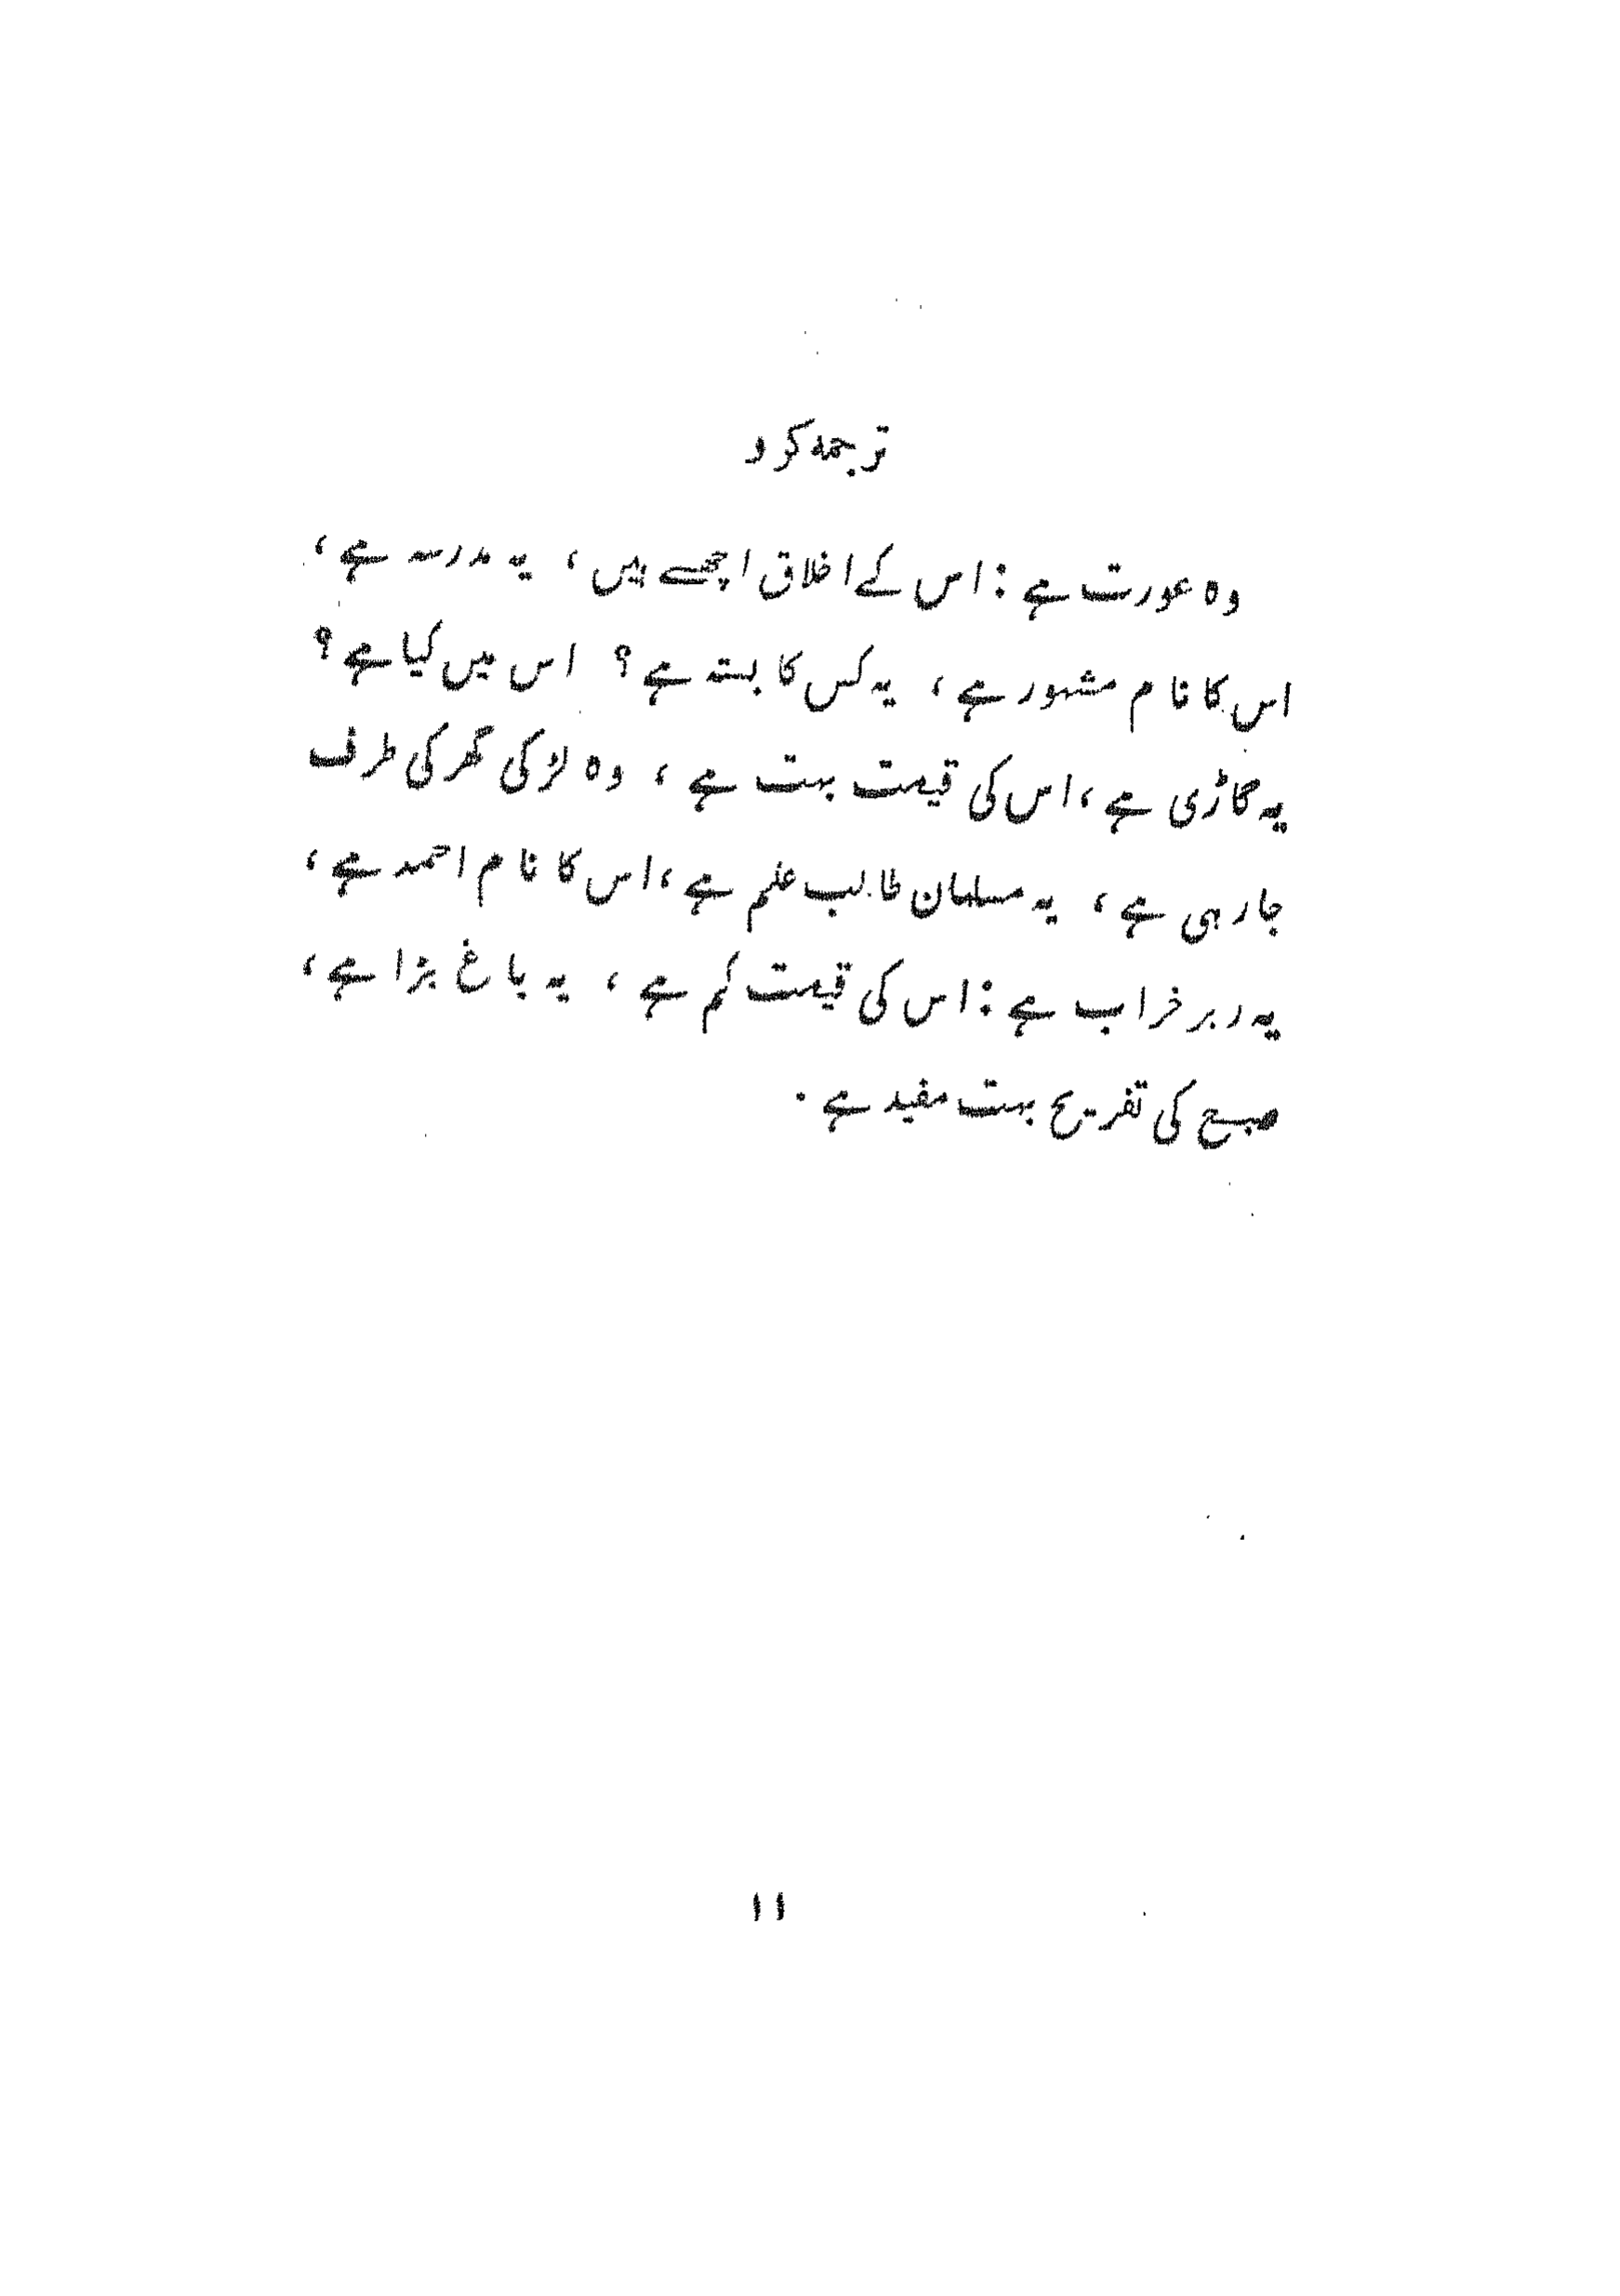 ترجمہ کرو
وہ عورت ہے : اس کے اخلاق اچھے ہیں ، یہ مدرسہ ہے ،
اس کا نام مشہور ہے ، یہ کس کا بستہ ہے ؟ اس میں کیا ہے ؟
یہ گاڑی ہے ، اس کی قیمت بہت ہے ، وہ لڑکی گھر کی طرف
جا رہی ہے ، یہ مسلمان طالب علم ہے ، اس کا نام احمد ہے ،
یہ ربر خراب ہے : اس کی قیمت کم ہے ، یہ باغ بڑا ہے ،
صبح کی تفریح بہت مفید ہے ۰
۱۱